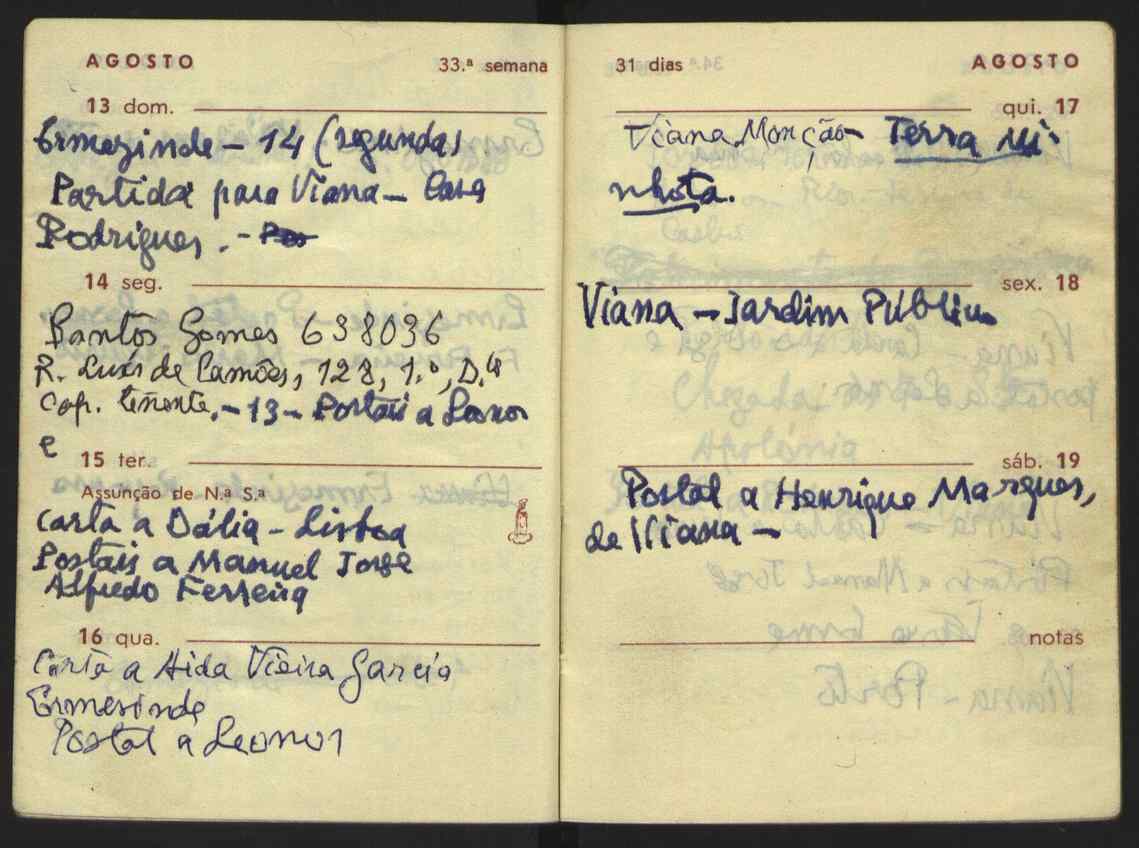 AGOSTO 33.ª semana
13 dom.
Ermezinde – 14 (segunda)
Partida para Viana – Casa
Rodrigues. –
14 seg.
Santos Gomes 638036
R. Luís de Camões, 128, 1.º, D.tº
Cap. tenente. – 13 – Postais a Leonor
e
15 terç.
Assunção de N.ª S.ª
Carta a Dália – Lisboa
Postais a Manuel Jorge
Alfredo Ferreira
16 qua.
Carta a Aida Vieira Garcia
Ermesinde
Postal a Leonor
31 dias AGOSTO
qui. 17
Viana, Monção – Terra Mi-
nhota.
sex. 18
Viana – Jardim Público
sáb. 19
Postal a Henrique Marques,
de Viana –
notas